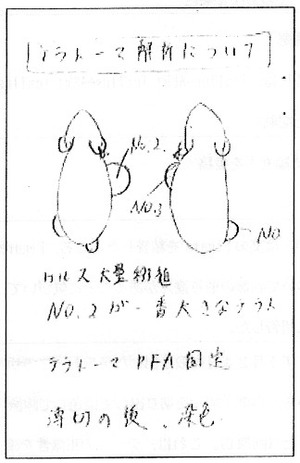 テラトーマ解析について
No.2
NO.3
NO
NO.2が一番大きなテラト
テラトーマPFA固定
薄切の後、染色